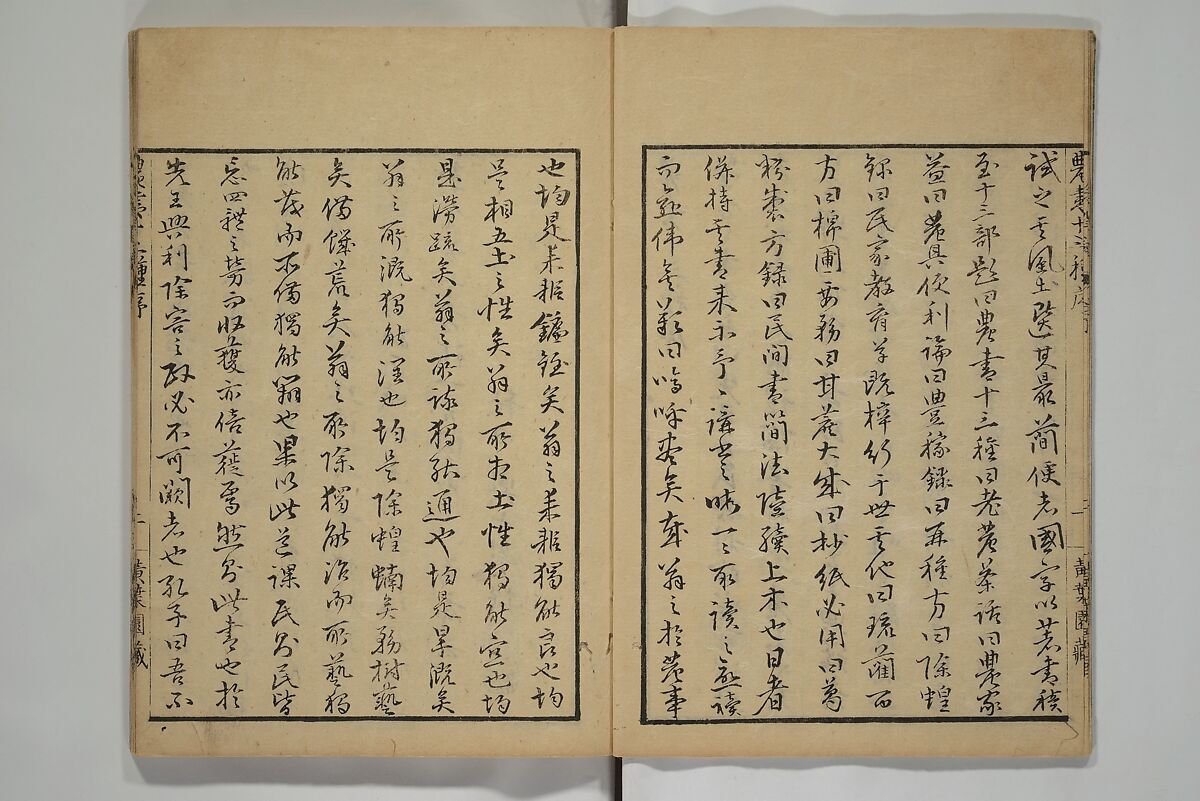 農書十三種序 一 黄葉園藏
試之其風土選其最簡便者國字以著書積
至十三部題曰農書十三種曰老農茶話曰農家
益曰農具便利論曰豊稼録曰再種方曰除蝗
録曰民家教育草既梓行于世其他曰琉藺百
方曰棉圃要務曰甘蔗大成曰抄紙必用曰葛
粉製方録曰民間書簡法陸續上木也日者
併持其書来示予〻講學之暇一〻取讀之愈讀
而愈偉矣歎曰嗚呼盡矣哉翁之於農事
也均是耒耜鐮銍矣翁之耒耜獨能良也均
是相五土之性矣翁之所相土性獨能宜也均
是澇疏矣翁之所疏獨能通也均是旱漑矣
翁之所漑獨能深也均是除蝗蝻矣務樹藝
矣備饑荒矣翁之所除獨能治而所藝獨
能茂而所備獨能也果以此道課民則民皆
忘四體之勞而收穫亦倍蓰焉然則此書也於
先王興利除害之政必不可闕者也孔子曰吾不
農書十三種序 二 黄葉園藏